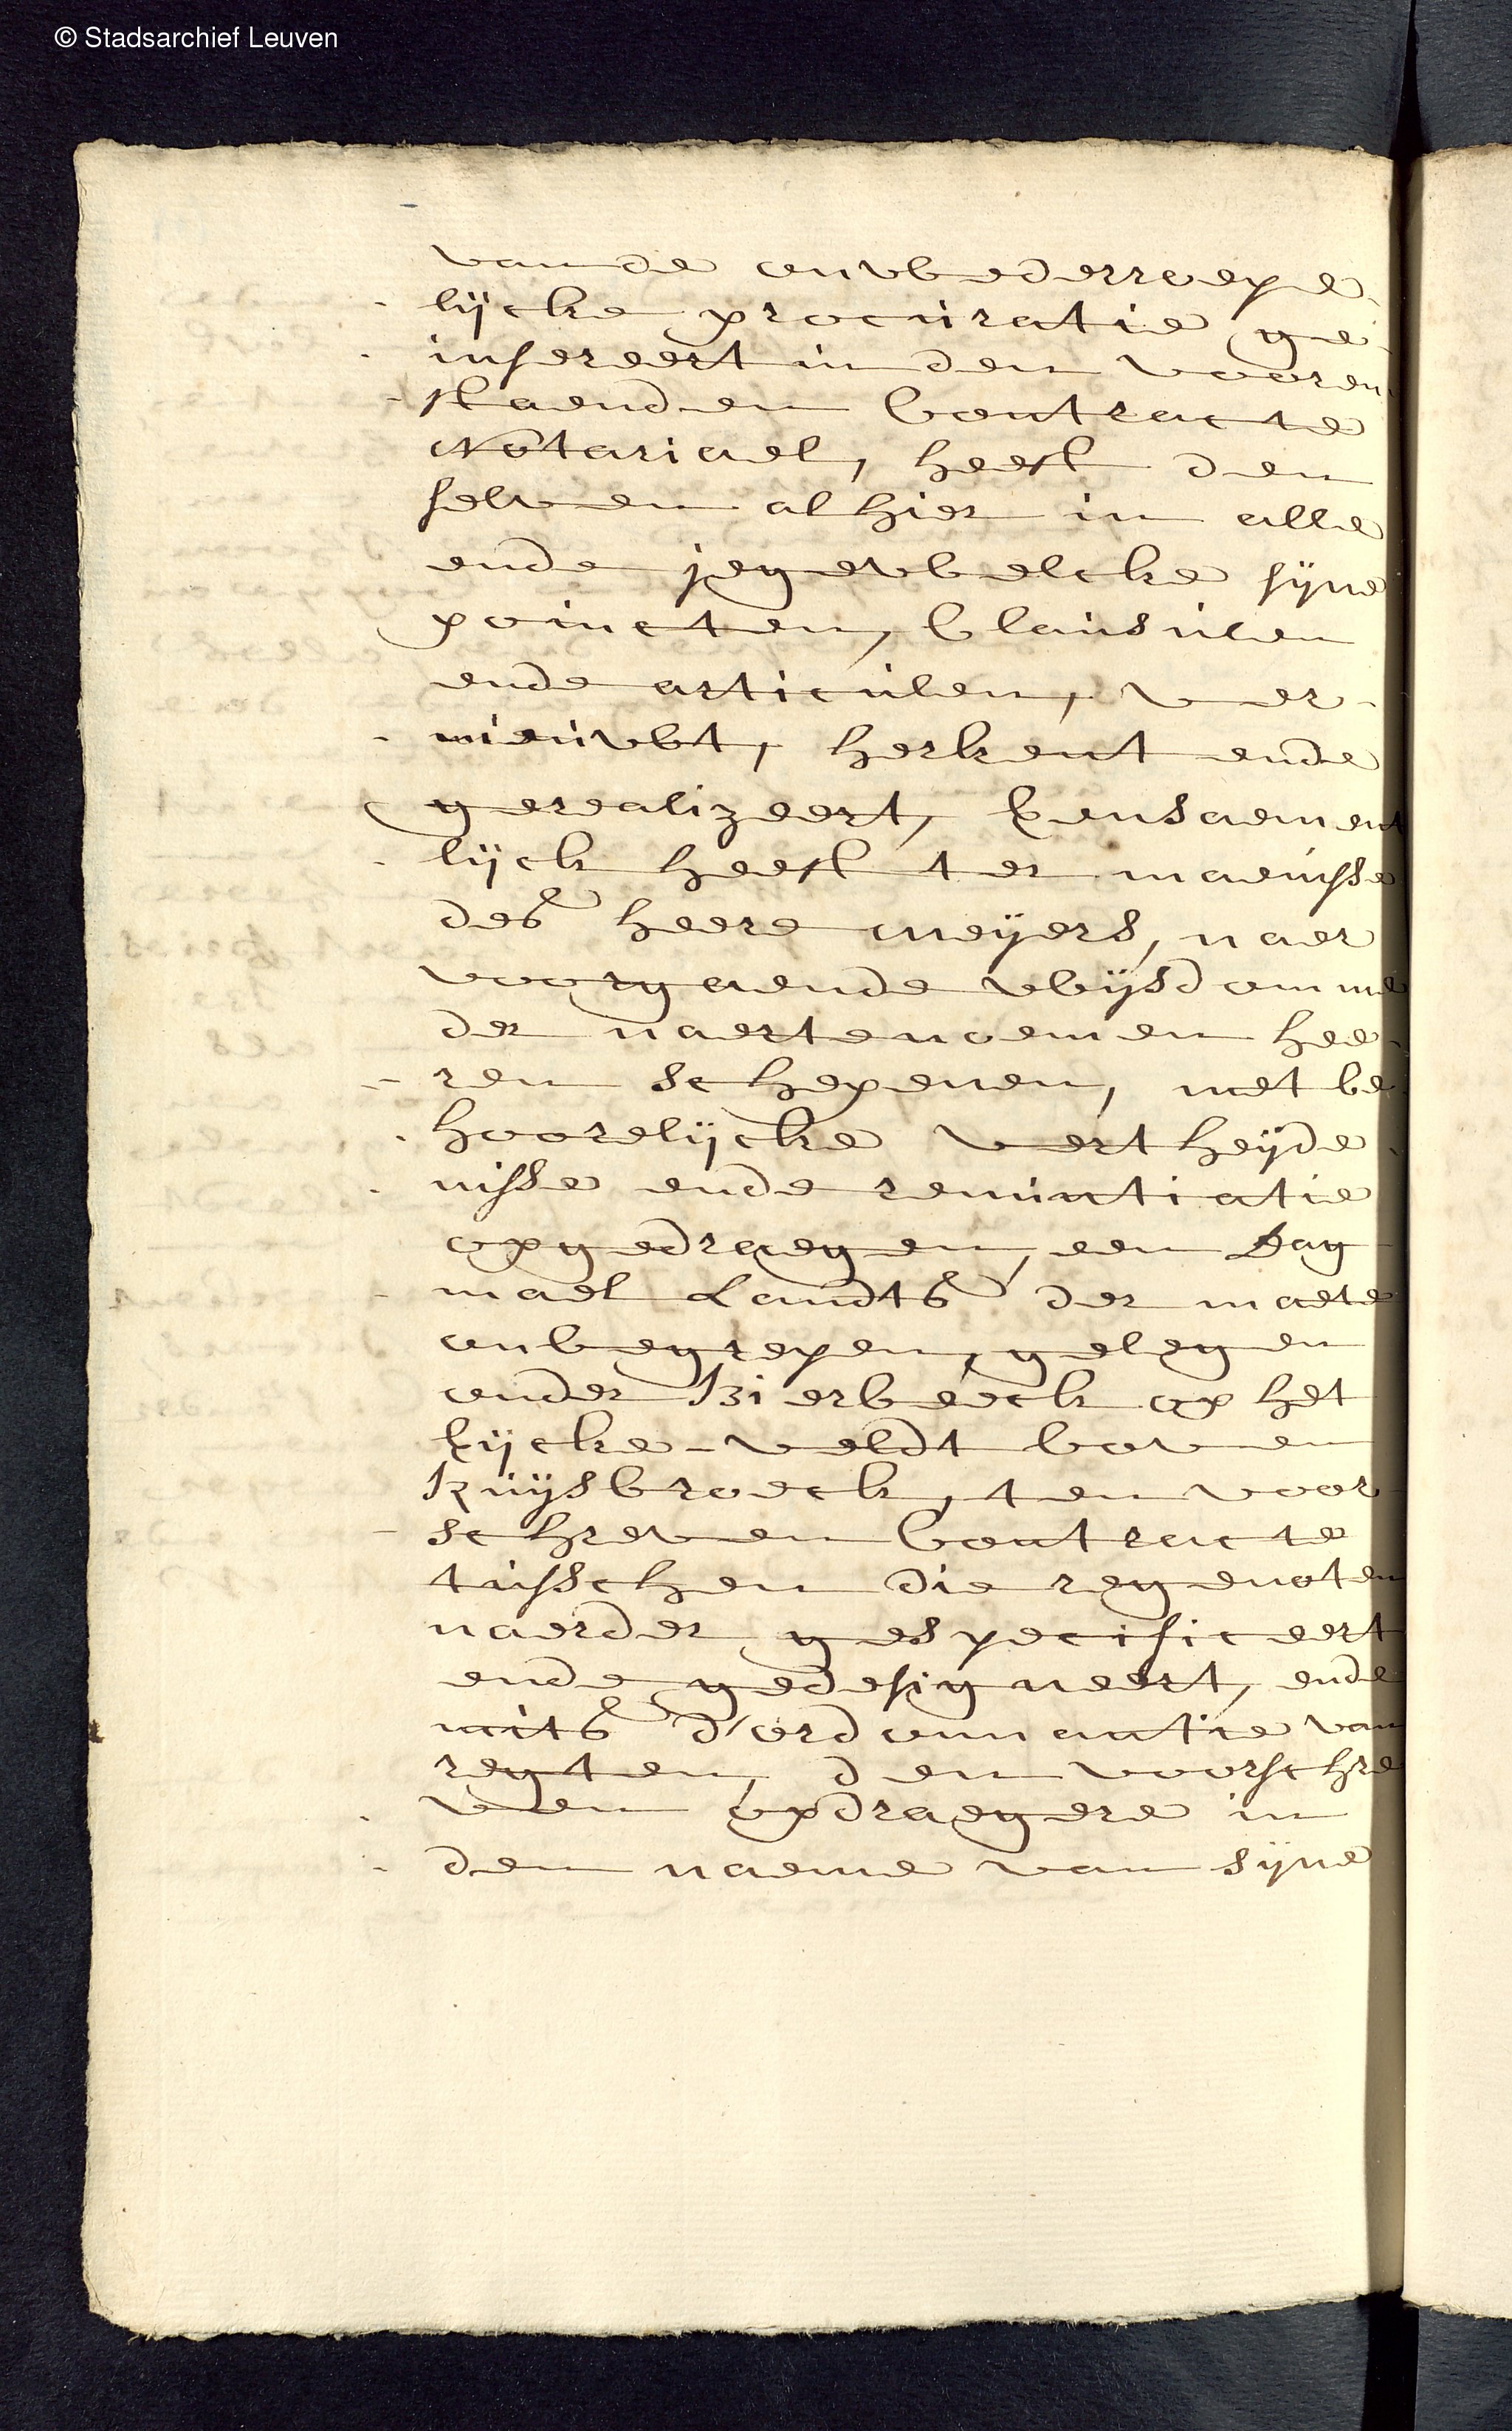 © Stadsarchief Leuven
van de onwederroepe
lijcke procuratie ge
insereert in den vooren
staenden Contracte
Notariael, heeft den
selven alhier in alle
ende jegewelcke sijne
poincten, Clausulen
ende articulen, ver
nieuwt, herkent ende
gerealizeert, Consaement
lijck heeft ter maenisse
des heere meijers, naer
voorgaende wijsdomme
der naertenoemen hee
ren schepenen, met be
hoorelijcke vertheijde
nisse ende renuntiatie
opgedraegen, een Dag
mael Landts der maete
onbegrepen, gelegen
onder Bierbeeck op het
kijcke-veldt boven
Ruijsbroeck, ten voor
schreven Contracte
tusschen die regenoten
naerder gespecificeert
ende gedesigneert, ende
mits d'ordonnantie van
regten, den voorschre
ven opdraegere in
den naeme van sijne